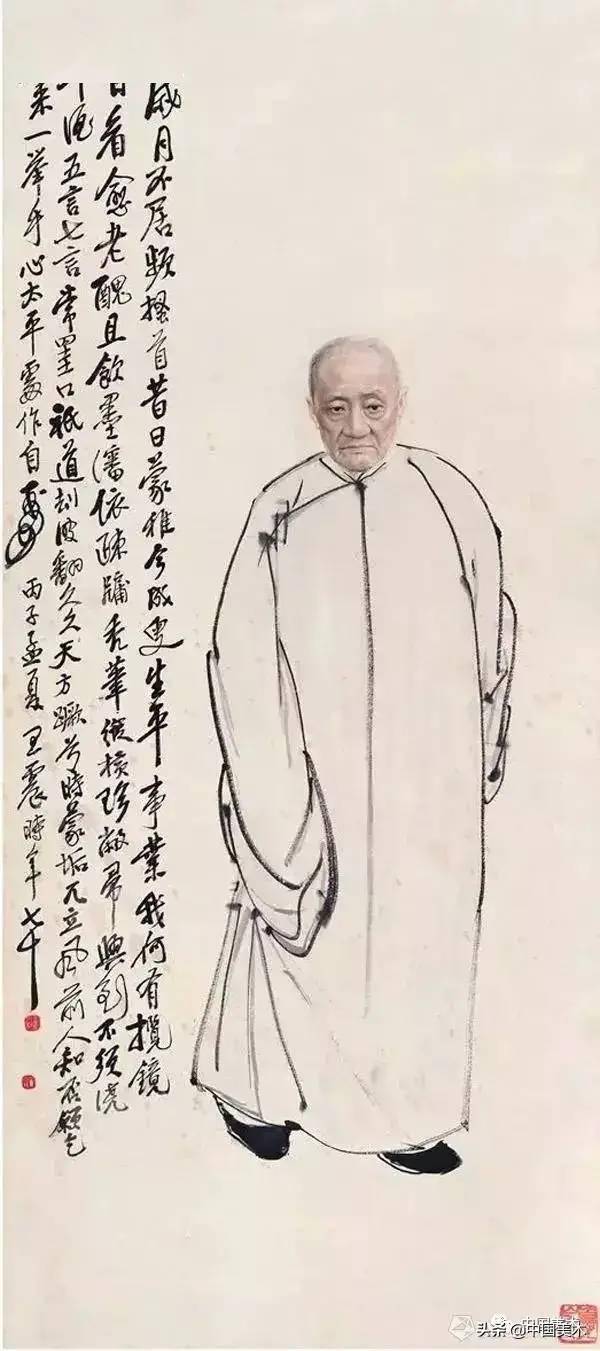 歲月不居頻搔首昔日蒙稚今成叟生平事業我何有攬鏡
日看愈老醜且飲墨瀋依疎牖禿筆縱橫珍敝帚興到不須澆
斗酒五言七言常罣口祇道刦波翻久久天方蹶兮時蒙垢兀立風前人知否願乞
來一舉手心太平處作自壽
丙子孟夏 王震時年七十
中国美术
头条 @中国美术